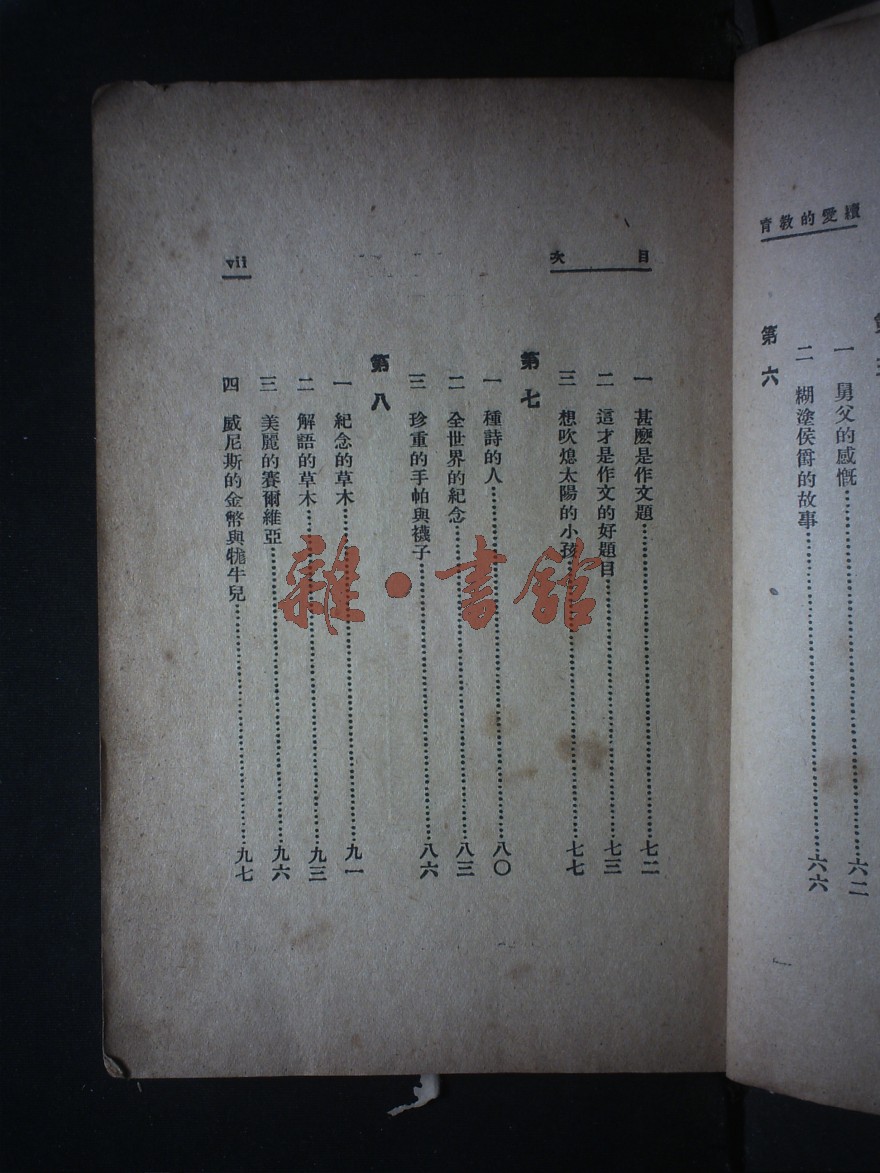 續愛的教育
一 舅父的感慨……六二
二 糊塗侯爵的故事……六六
第六
目次
一 甚麼是作文題……七二
二 這才是作文的好題目……七三
三 想吹熄太陽的小孩……七七
第七
一 種詩的人……八〇
二 全世界的紀念……八三
三 珍重的手帕與襪子……八六
第八
一 紀念的草木……九一
二 解語的草木……九三
三 美麗的賽爾維亞……九六
四 威尼斯的金幣與牻牛兒……九七
vii
雜·書館